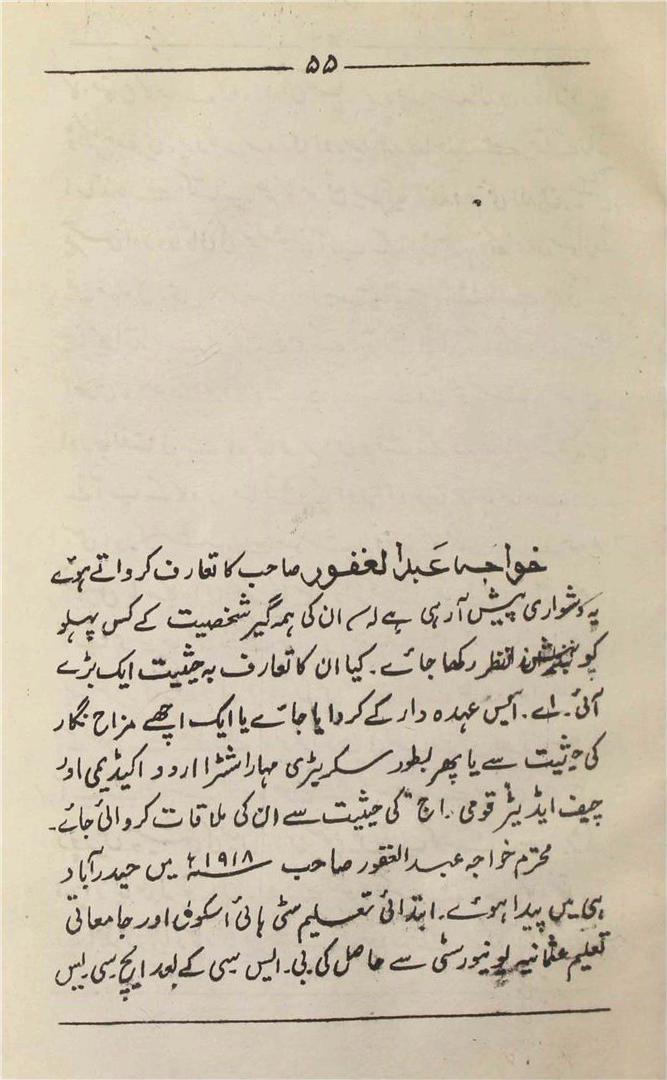 ۵۵
خواجہ عبدالغفور صاحب کا تعارف کرواتے ہوئے
یہ دشواری پیش آرہی ہے کہ ان کی ہمہ گیر شخصیت کے کس پہلو
کو پیش نظر رکھا جائے۔ کیا ان کا تعارف بہ حیثیت ایک بڑے
آئی۔ اے۔ ایس عہدہ دار کے کروایا جائے یا ایک اچھے مزاح نگار
کی حیثیت سے یا پھر بطور سکریٹری مہاراشٹرا اردو اکیڈیمی اور
چیف ایڈیٹر قومی راج" کی حیثیت سے ان کی ملاقات کروائی جائے۔
محترم خواجہ عبدالغفور صاحب ۱۹۱۸ء میں حیدرآباد
ہی میں پیدا ہوئے۔ ابتدائی تعلیم سٹی ہائی اسکول اور جامعاتی
تعلیم عثمانیہ یونیورسٹی سے حاصل کی بی۔ ایس سی کے بعد ایچ۔سی۔یس